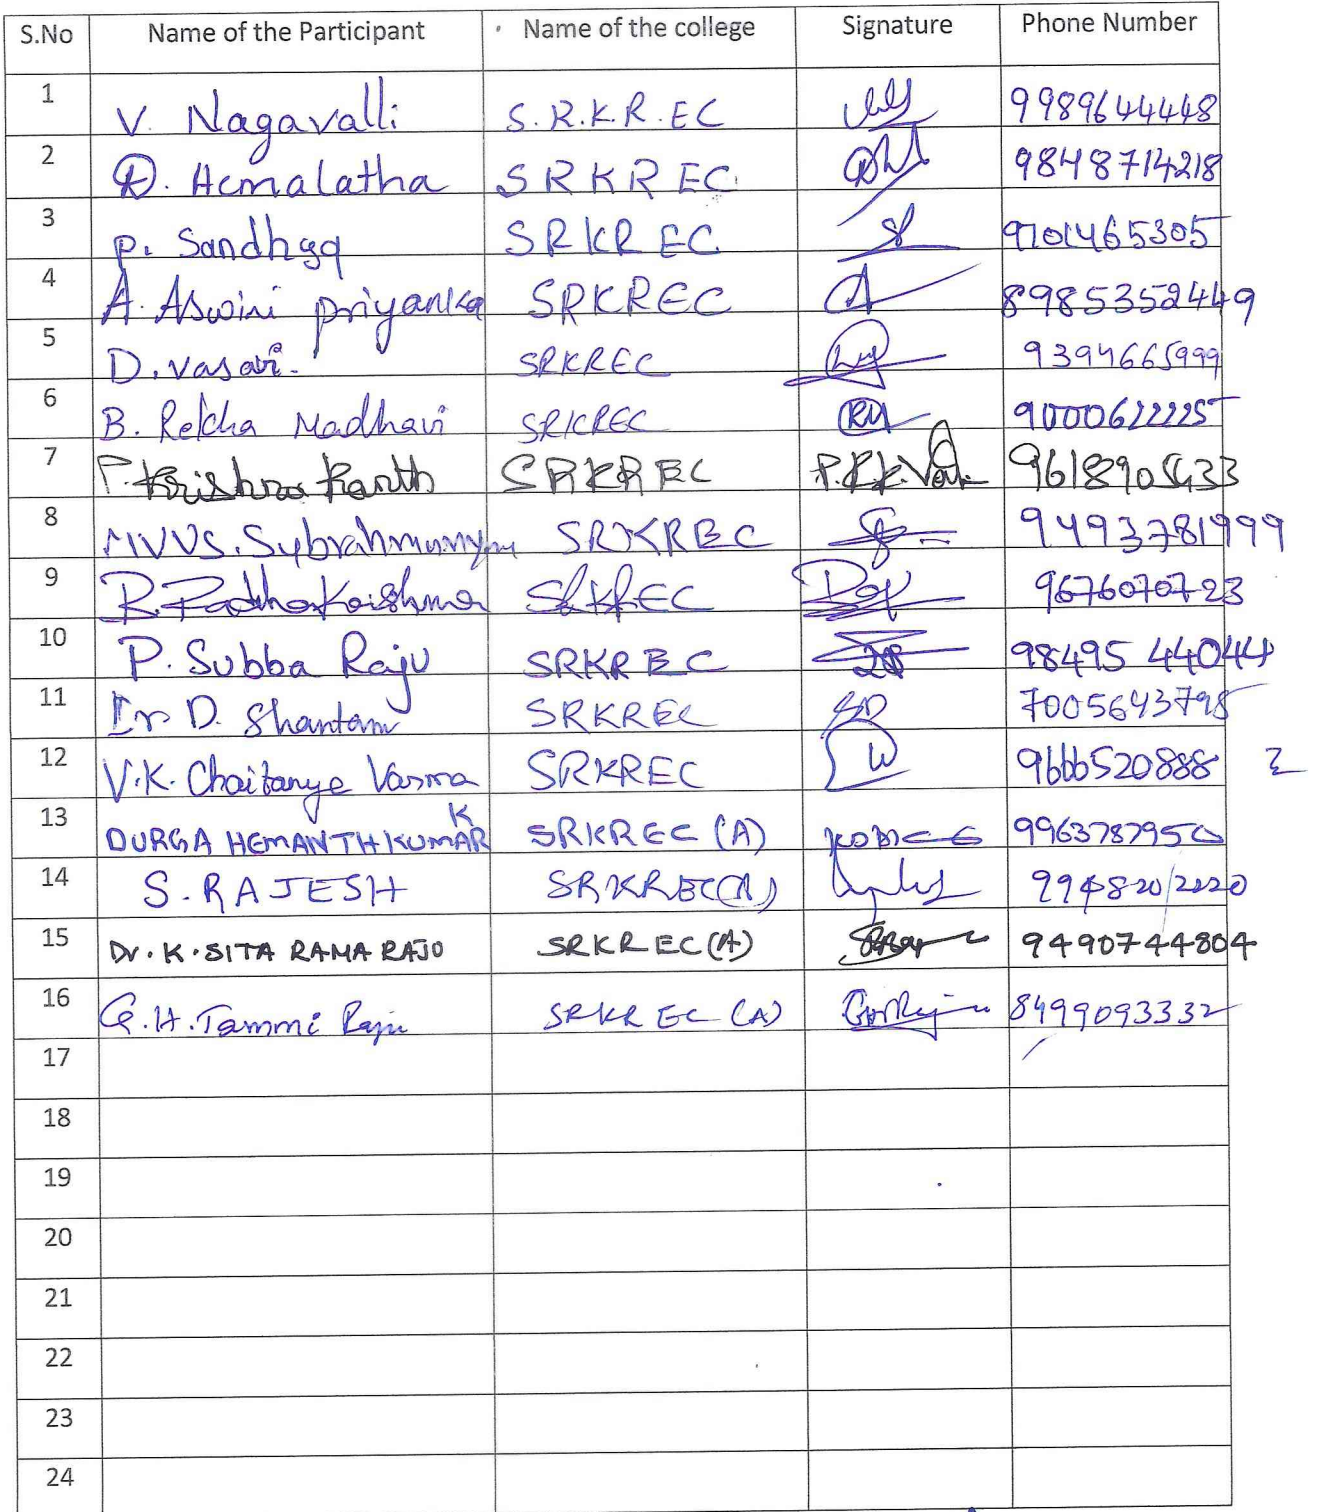 S.No Name of the Participant Name of the college Signature Phone Number
1 V. Nagavalli S.R.K.R.EC 9989644448
2 D. Hemalatha SRKREC 9848714218
3 P. Sandhya SRKREC 9701465305
4 A. Aswini Priyanka SRKREC 8985352449
5 D. Vasavi. SRKREC 9394665999
6 B. Rekha Madhavi SRKREC RM 9000622225
7 P. Krishna Kanth SRKREC 9618905433
8 MVVS. Subrahmanyam SRKREC 9493781999
9 R. Radha Krishna SRKREC 9676070723
10 P. Subba Raju SRKREC 98495 44044
11 D. Shantam SRKREC SD 7005643795
12 V.K. Chaitanya Varma SRKREC 9666520888
13 DURGA HEMANTH KUMAR K SRKREC (A) 9963787950
14 S. RAJESH SRKREC(A) 9948202220
15 Dr. K. SITA RAMA RAJU SRKREC(A) 9490744804
16 G.H. Tammi Raju SRKREC (A) 8499093332
17
18
19
20
21
22
23
24